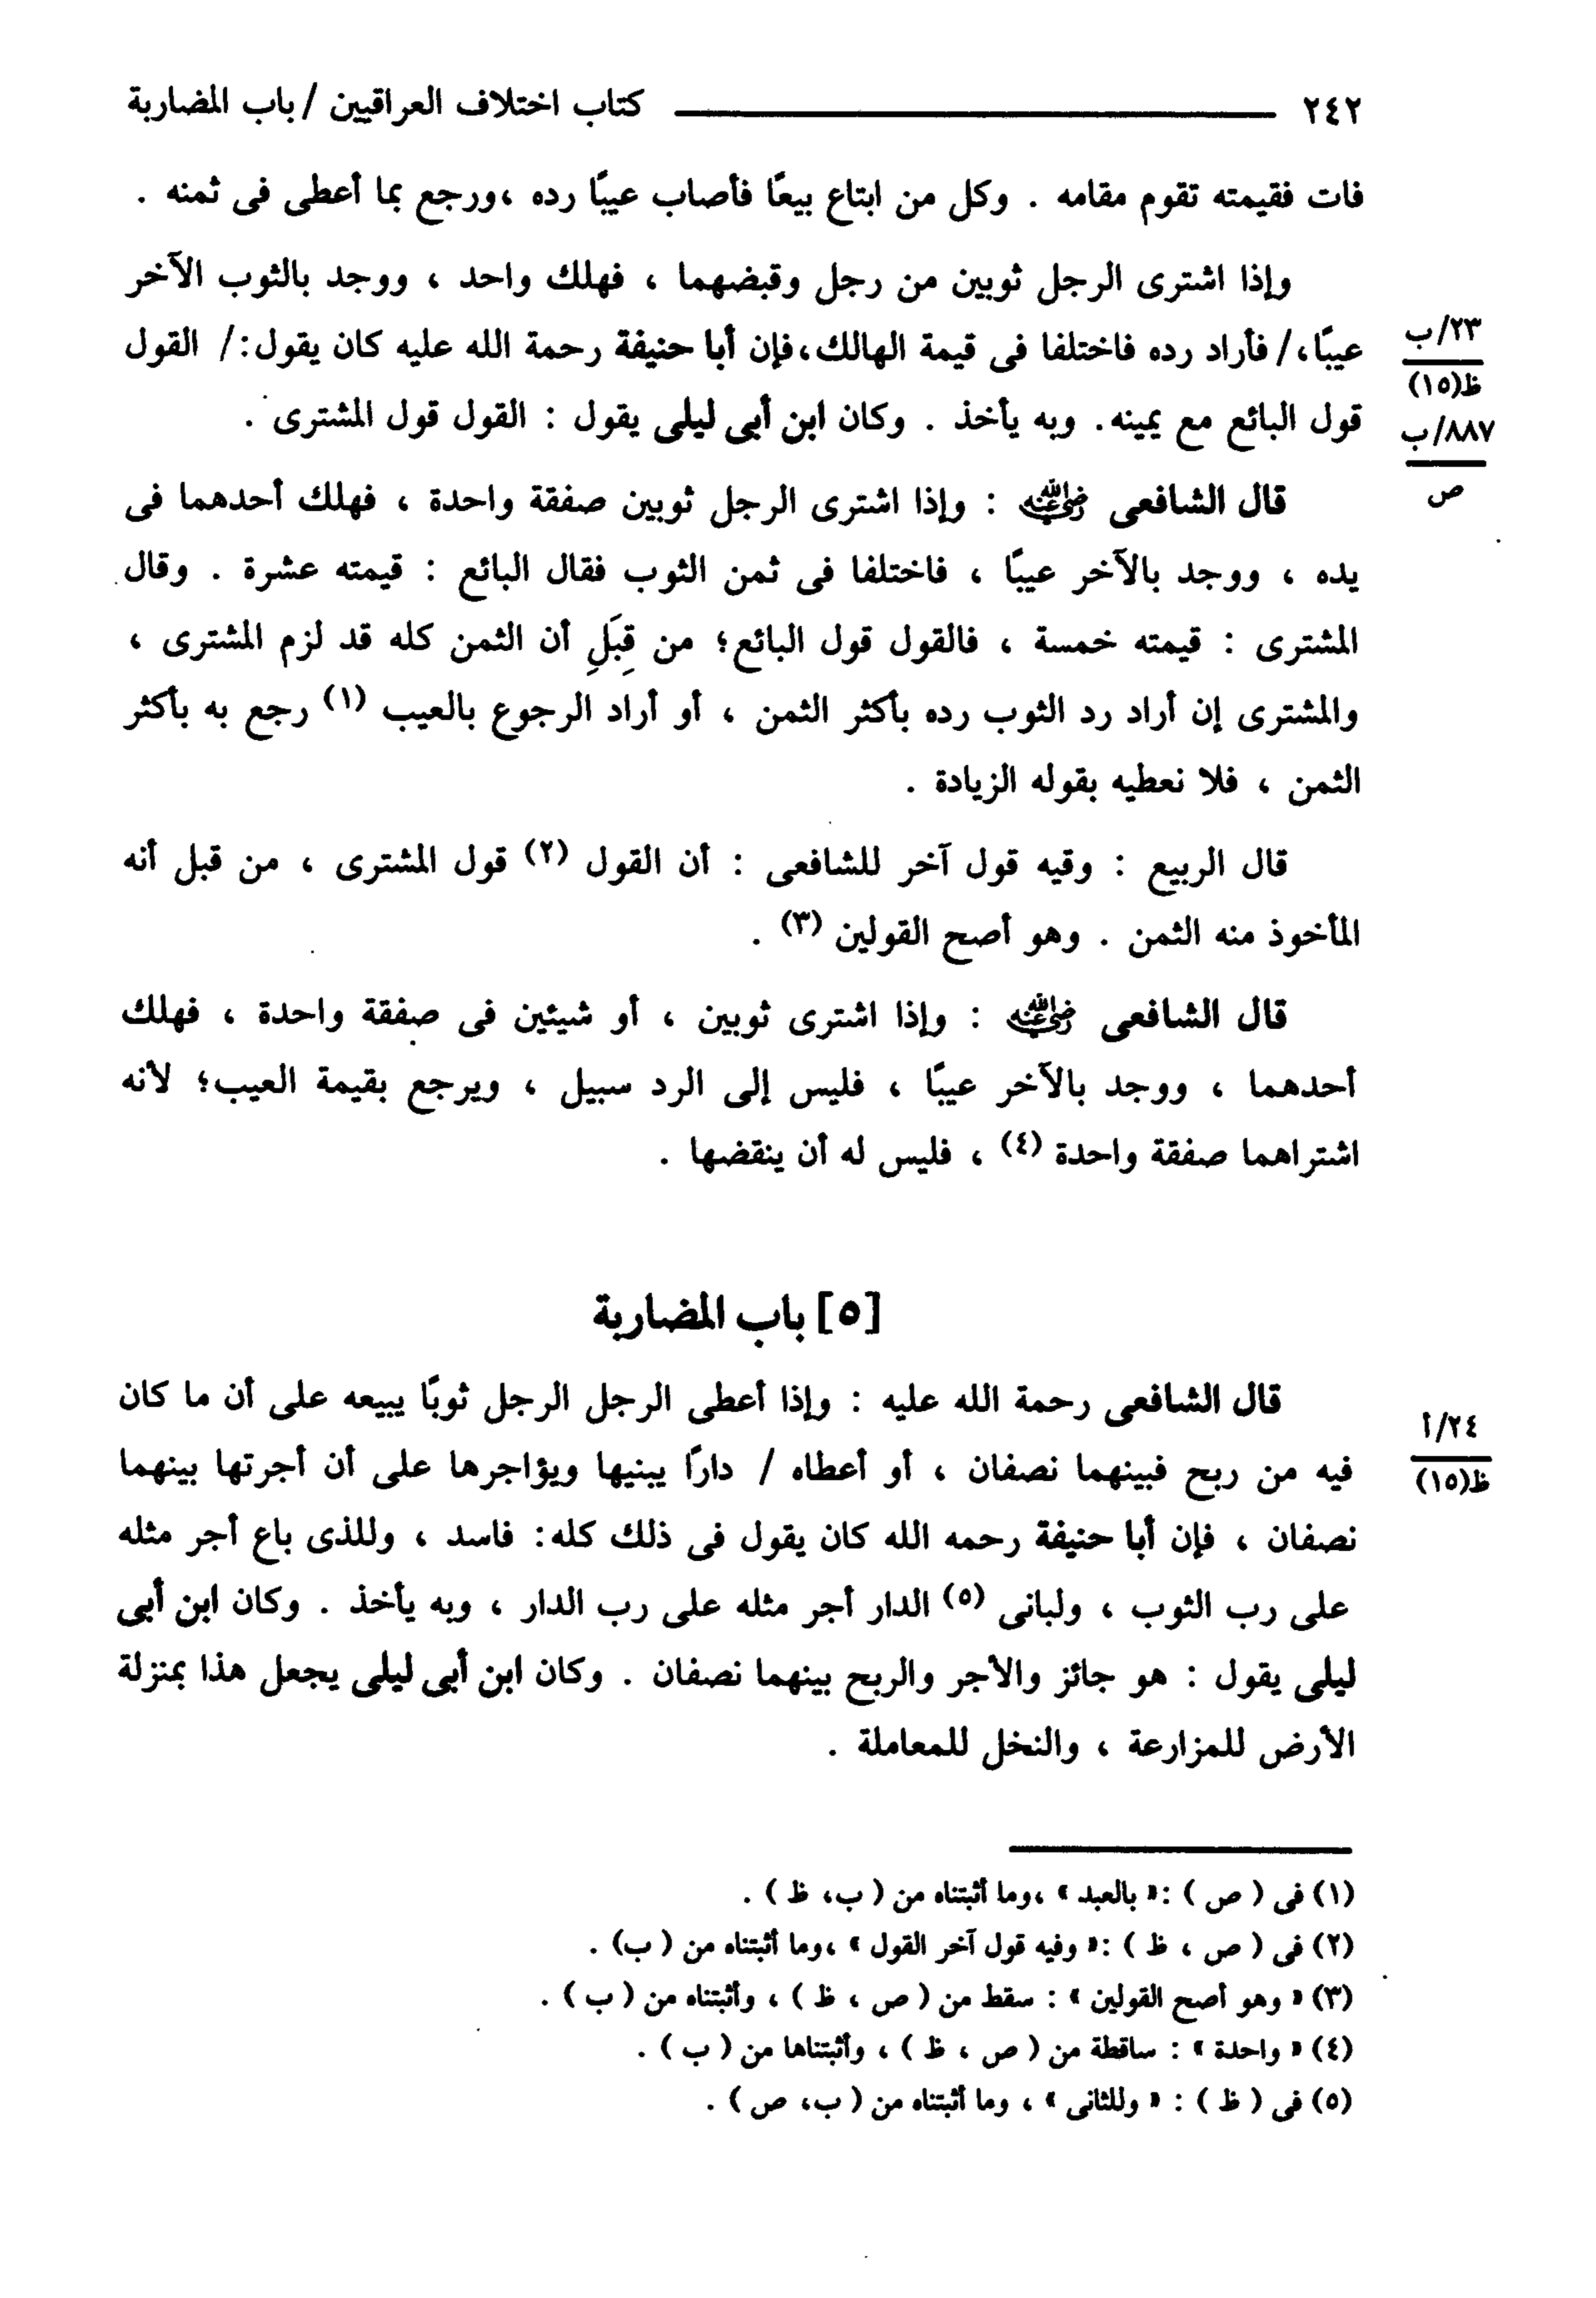 ٢٤٢ كتاب اختلاف العراقيين / باب المضاربة
فات فقيمته تقوم مقامه . وكل من ابتاع بيعًا فأصاب عيبًا رده ،ورجع بما أعطى فى ثمنه .
وإذا اشترى الرجل ثوبين من رجل وقبضهما ، فهلك واحد ، ووجد بالثوب الآخر
عيبًا،/ فأراد رده فاختلفا فى قيمة الهالك،فإن أبا حنيفة رحمة الله عليه كان يقول:/ القول
٢٣/ب
ظ(١٥)
قول البائع مع يمينه. وبه يأخذ . وكان ابن أبى ليلى يقول : القول قول المشترى .
٨٨٧/ب
ص
قال الشافعى رضي الله عنه : وإذا اشترى الرجل ثوبين صفقة واحدة ، فهلك أحدهما فى
يده ، ووجد بالآخر عيبًا ، فاختلفا فى ثمن الثوب فقال البائع : قيمته عشرة . وقال
المشترى : قيمته خمسة ، فالقول قول البائع؛ من قِبَلِ أن الثمن كله قد لزم المشترى ،
والمشترى إن أراد رد الثوب رده بأكثر الثمن ، أو أراد الرجوع بالعيب (١) رجع به بأكثر
الثمن ، فلا نعطيه بقوله الزيادة .
قال الربيع : وقيه قول آخر للشافعى : أن القول (٢) قول المشترى ، من قبل أنه
المأخوذ منه الثمن . وهو أصح القولين (٣) .
قال الشافعى رضي الله عنه : وإذا اشترى ثوبين ، أو شيئين فى صفقة واحدة ، فهلك
أحدهما ، ووجد بالآخر عيبًا ، فليس إلى الرد سبيل ، ويرجع بقيمة العيب؛ لأنه
اشتراهما صفقة واحدة (٤) ، فليس له أن ينقضها .
[٥] باب المضاربة
قال الشافعى رحمة الله عليه : وإذا أعطى الرجل الرجل ثوبًا يبيعه على أن ما كان
فيه من ربح فبينهما نصفان ، أو أعطاه / دارًا يبنيها ويؤاجرها على أن أجرتها بينهما
٢٤/أ
ظ(١٥)
نصفان ، فإن أبا حنيفة رحمه الله كان يقول فى ذلك كله: فاسد ، وللذى باع أجر مثله
على رب الثوب ، ولبانى (٥) الدار أجر مثله على رب الدار ، وبه يأخذ . وكان ابن أبى
ليلى يقول : هو جائز والأجر والربح بينهما نصفان . وكان ابن أبى ليلى يجعل هذا بمنزلة
الأرض للمزارعة ، والنخل للمعاملة .
(١) فى ( ص ) :« بالعبد » ،وما أثبتناه من ( ب، ظ ) .
(٢) فى ( ص ، ظ ) :« وفيه قول آخر القول » ،وما أثبتناه من ( ب) .
(٣) « وهو أصح القولين » : سقط من ( ص ، ظ ) ، وأثبتناه من ( ب ) .
(٤) « واحدة » : ساقطة من ( ص ، ظ ) ، وأثبتناها من ( ب ) .
(٥) فى ( ظ ) : « وللثانى » ، وما أثبتناه من ( ب، ص ) .